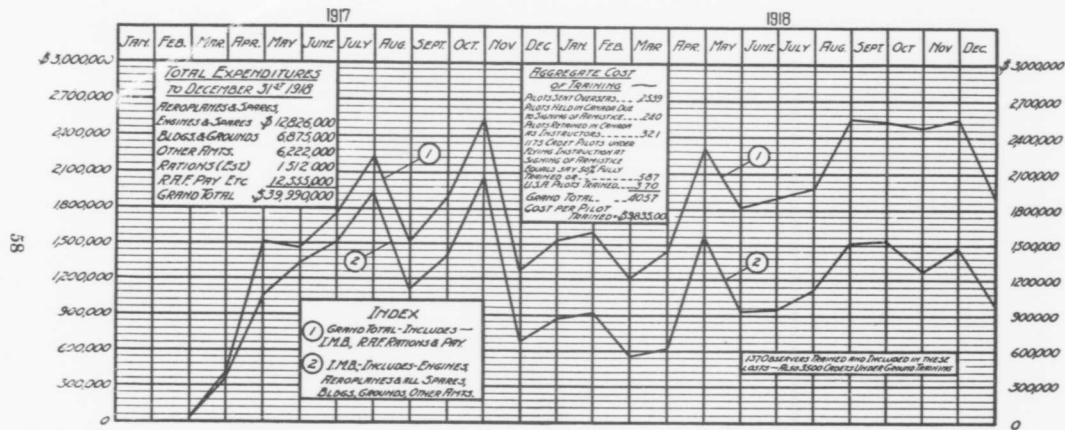 1917
1918
JAN. FEB. MAR. APR. MAY JUNE JULY AUG. SEPT. OCT. NOV DEC JAN. FEB. MAR APR. MAY JUNE JULY AUG. SEPT. OCT NOV DEC.
$3,000,000
2,700,000
2,400,000
2,100,000
1,800,000
1,500,000
1,200,000
900,000
600,000
300,000
0
TOTAL EXPENDITURES
TO DECEMBER 31ST 1918
AEROPLANES & SPARES,
ENGINES & SPARES $12,826,000
BLDGS. & GROUNDS 6,875,000
OTHER AMTS. 6,222,000
RATIONS (EST) 1,512,000
R.A.F. PAY ETC 12,555,000
GRAND TOTAL $39,990,000
AGGREGATE COST
OF TRAINING
PILOTS SENT OVERSEAS 2539
PILOTS HELD IN CANADA DUE
TO SIGNING OF ARMISTICE 240
PILOTS RETAINED IN CANADA
AS INSTRUCTORS 321
1175 CADET PILOTS UNDER
FLYING INSTRUCTION AT
SIGNING OF ARMISTICE
EQUALS SAY 50% FULLY
TRAINED OR 587
U.S.A. PILOTS TRAINED 370
GRAND TOTAL 4057
COST PER PILOT
TRAINED = $9835.00
1
2
1
2
INDEX
1 GRAND TOTAL - INCLUDES —
I.M.B., R.A.F. RATIONS & PAY
2 I.M.B.; INCLUDES - ENGINES,
AEROPLANES & ALL SPARES,
BLDGS, GROUNDS, OTHER AMTS.
137 OBSERVERS TRAINED AND INCLUDED IN THESE
COSTS — ALSO 3500 CADETS UNDER GROUND TRAINING
$3,000,000
2,700,000
2,400,000
2,100,000
1,800,000
1,500,000
1,200,000
900,000
600,000
300,000
0
58